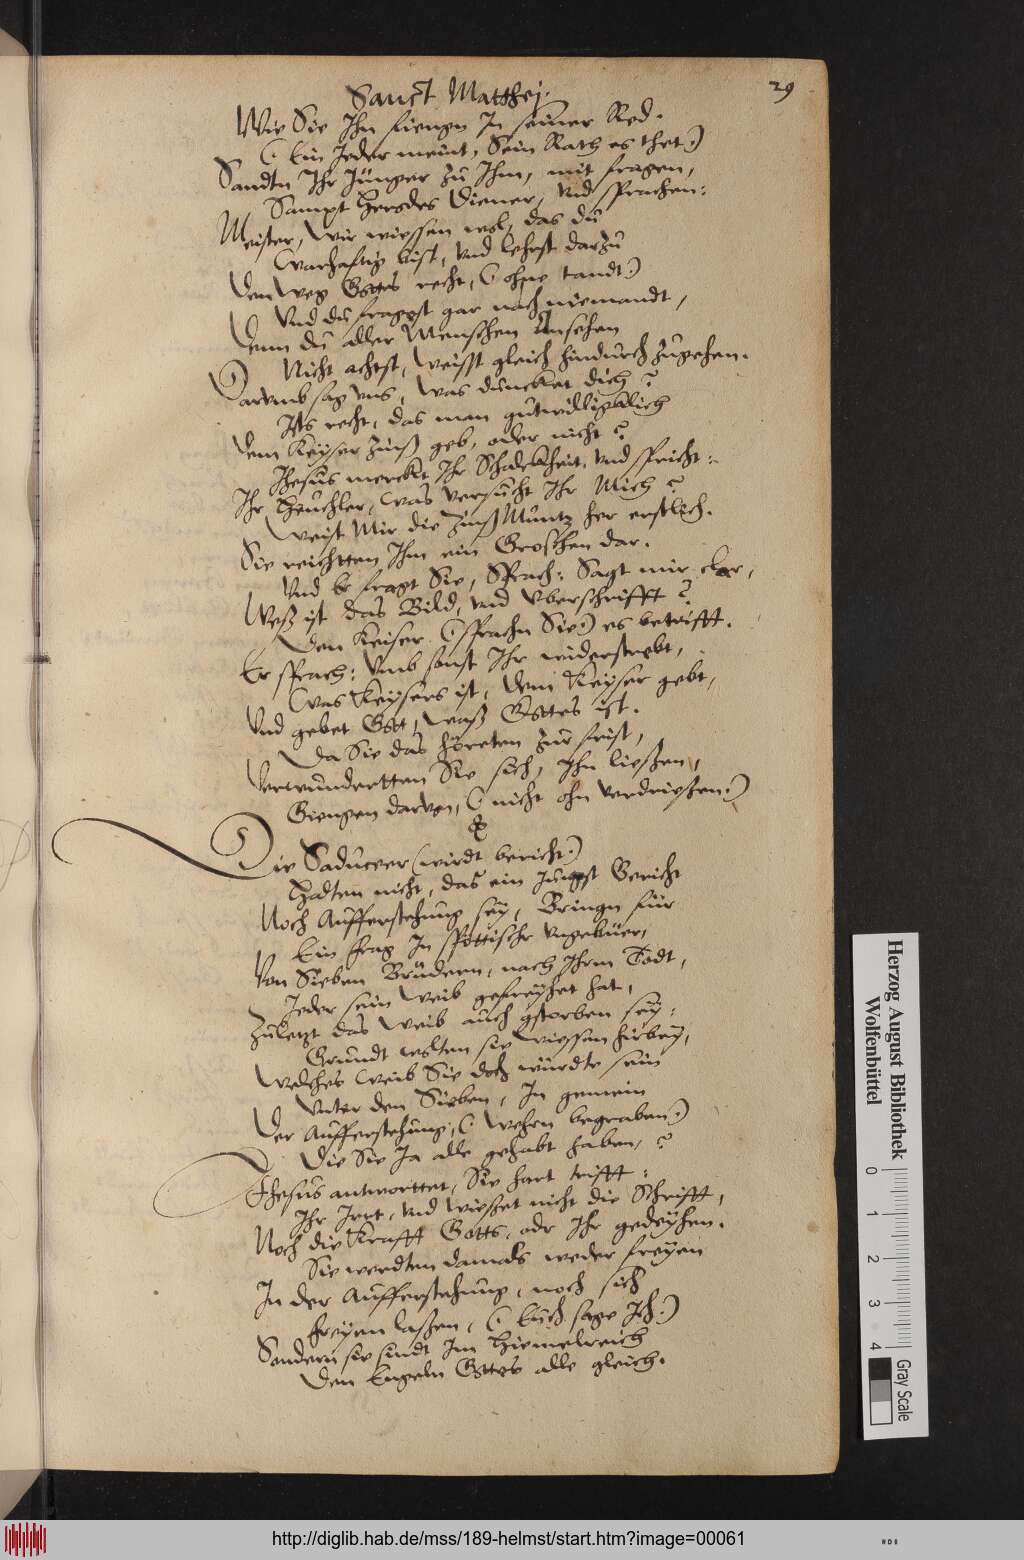 Sanct Matthej.
29
Wie Sie Ihn fiengn In seiner Red.
(: Ein Jeder meint, Sein Rath es thet:)
Sandtn Ihr Jünger zu Ihm, mit fragen,
Sampt Herodes Diener, Vnd sprachen:
Meister, Wir wiessen wol, das du
Warhafftig bist, Vnd lehrst darzu
Den Weg Gottes recht, (: ohne tandt:)
Vnd du fragest gar nach niemandt,
Denn du aller Menschen Ansehen
Nicht achtst, Weisst gleich hindurch zugehen.
Darumb sag vns, Was duncket dich?
Ists recht, das man gutwilligklich
dem Keyser Zinß geb, oder nicht?
Jhesus merckt Ihr Schalckheit, Vnd spricht:
Ihr Heuchler, Was versucht Ihr Mich?
Weist Mir die Zinß Müntz her erstlich.
Sie reichtten Ihm ein Groschen dar.
Vnd Er fragt Sie, Sprach: Sagt mir clar,
Weß ist das Bild, Vnd Vberschrifft?
Den Keiser (: sprachn Sie:) es betrifft.
Er sprach: Vmb sonst Ihr widerstrebt,
Was Keysers ist, dem Keyser gebt,
Vnd gebet Gott, Waß Gottes ist.
Da Sie das höreten zur frist,
Verwundertten Sie sich, Ihn ließen,
Giengen darvon, (: nicht ohn verdrießen:)
Die Saduceer (wirdt bericht:)
Hadten nicht, das ein Jungst Gericht
Noch Aufferstehung sey, Bringn für
Ein frag In spöttischr Vngebüer,
Von Sieben Brüdern, nach Ihrm Todt,
Jeder sein Weib gefreyhet hat,
Zuletzt das Weib auch gstorben sey,
Grundt wolten sie wiessen hirbey,
Welches Weib Sie doch würdte sein
Vnter den Sieben, In gemein
Der Aufferstehung, (: Wehrn begraben:)
Die Sie Ja alle gehabt haben?
Jhesus antworttet, Sie hart trifft:
Ihr Irrt, Vnd wießet nicht die Schrifft,
Noch die Krafft Gotts, odr Ihr gedeyhen.
Sie werdten damals weder freyen
In der Aufferstehung, noch sich
freyen laßen, (: Euch sage Ich:)
Sondern sie sindt Im Hiemelreich
Den Engeln Gottes alle gleich.
Herzog August Bibliothek
Wolfenbüttel
0 1 2 3 4
Gray Scale
http://diglib.hab.de/mss/189-helmst/start.htm?image=00061